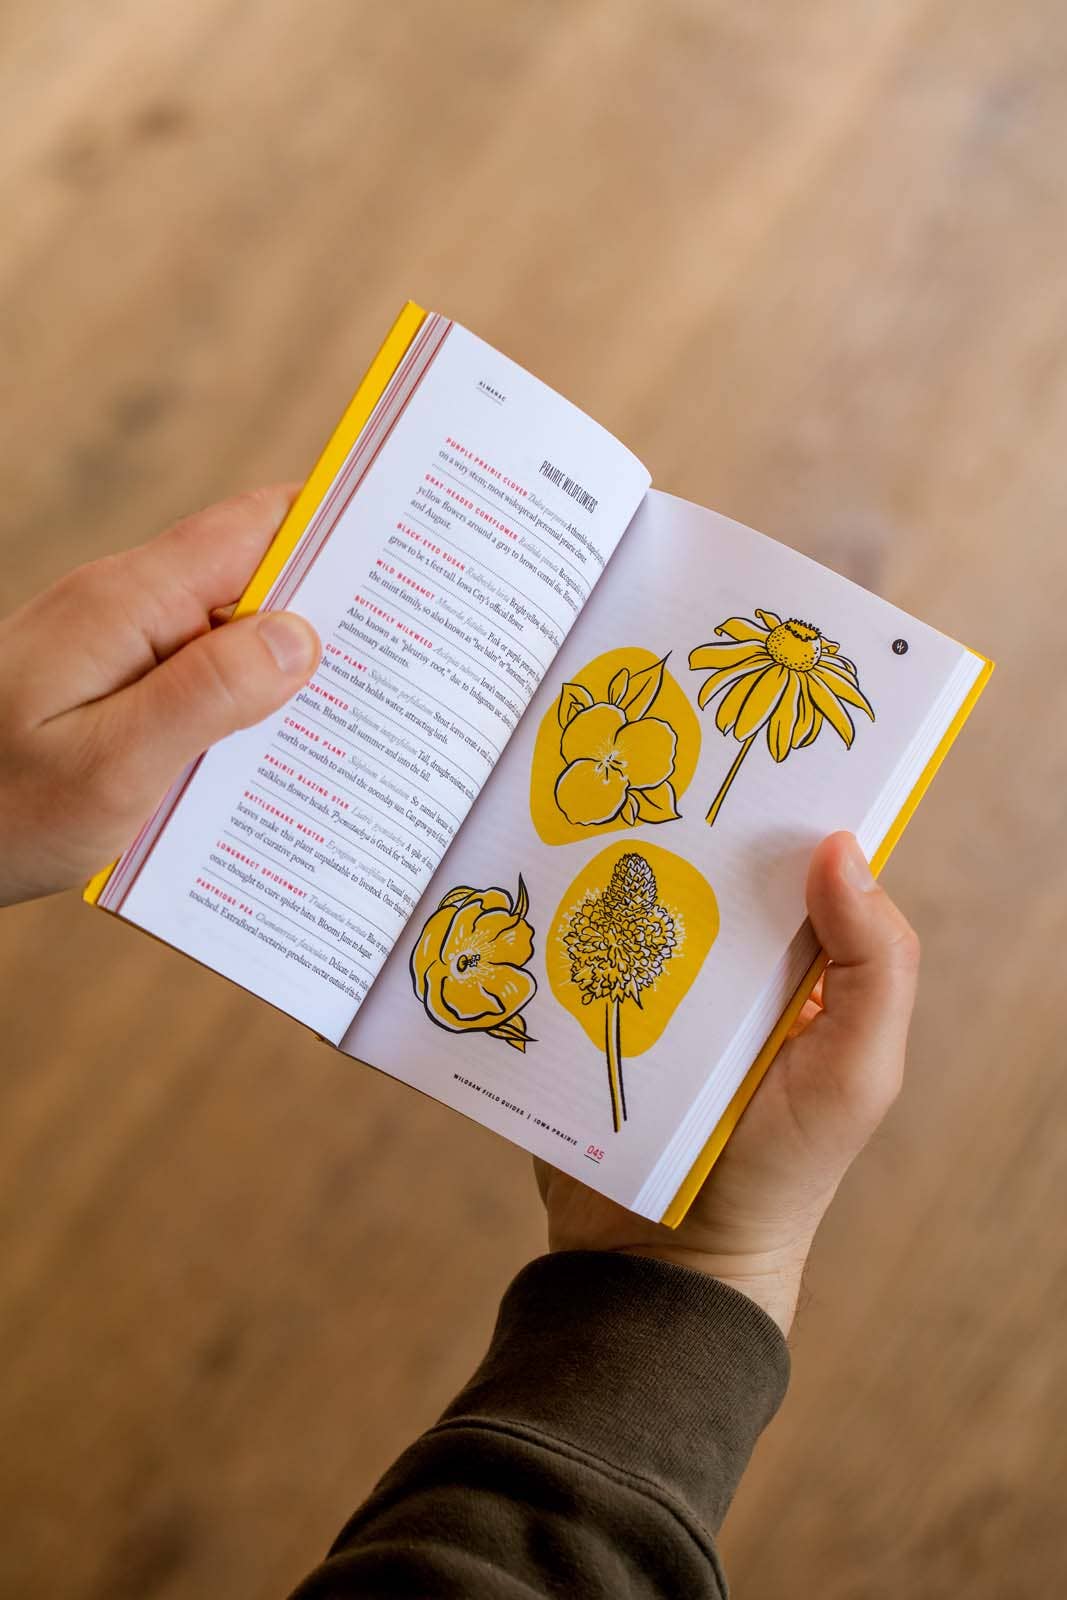 ALMANAC
PRAIRIE WILDFLOWERS
PURPLE PRAIRIE CLOVER Dalea purpurea A thimble-shaped
on a wiry stem; most widespread perennial prairie clover.
GRAY-HEADED CONEFLOWER Ratibida pinnata Recognizable
yellow flowers around a gray to brown central disc. Blooms
and August.
BLACK-EYED SUSAN Rudbeckia hirta Bright yellow, daisy-like
grow to be 3 feet tall. Iowa City's official flower.
WILD BERGAMOT Monarda fistulosa Pink or purple
the mint family, so also known as "bee balm" or "horsemint."
BUTTERFLY MILKWEED Asclepias tuberosa Iowa's most
Also known as "pleurisy root," due to Indigenous use
pulmonary ailments.
CUP PLANT Silphium perfoliatum Stout leaves create a
he stem that holds water, attracting birds.
OSINWEED Silphium integrifolium Tall, drought-resistant,
plants. Bloom all summer and into the fall.
COMPASS PLANT Silphium laciniatum So named because
north or south to avoid the noonday sun. Can grow up to
PRAIRIE BLAZING STAR Liatris pycnostachya A spike of
stalkless flower heads. Pycnostachya is Greek for "crowded."
RATTLESNAKE MASTER Eryngium yuccifolium Unusual
leaves make this plant unpalatable to livestock. Once thought
variety of curative powers.
LONGBRACT SPIDERWORT Tradescantia bracteata Blue or
once thought to cure spider bites. Blooms June to August
PARTRIDGE PEA Chamaecrista fasciculata Delicate leaves
touched. Extrafloral nectaries produce nectar outside of the
W
WILDSAM FIELD GUIDES | IOWA PRAIRIE 045